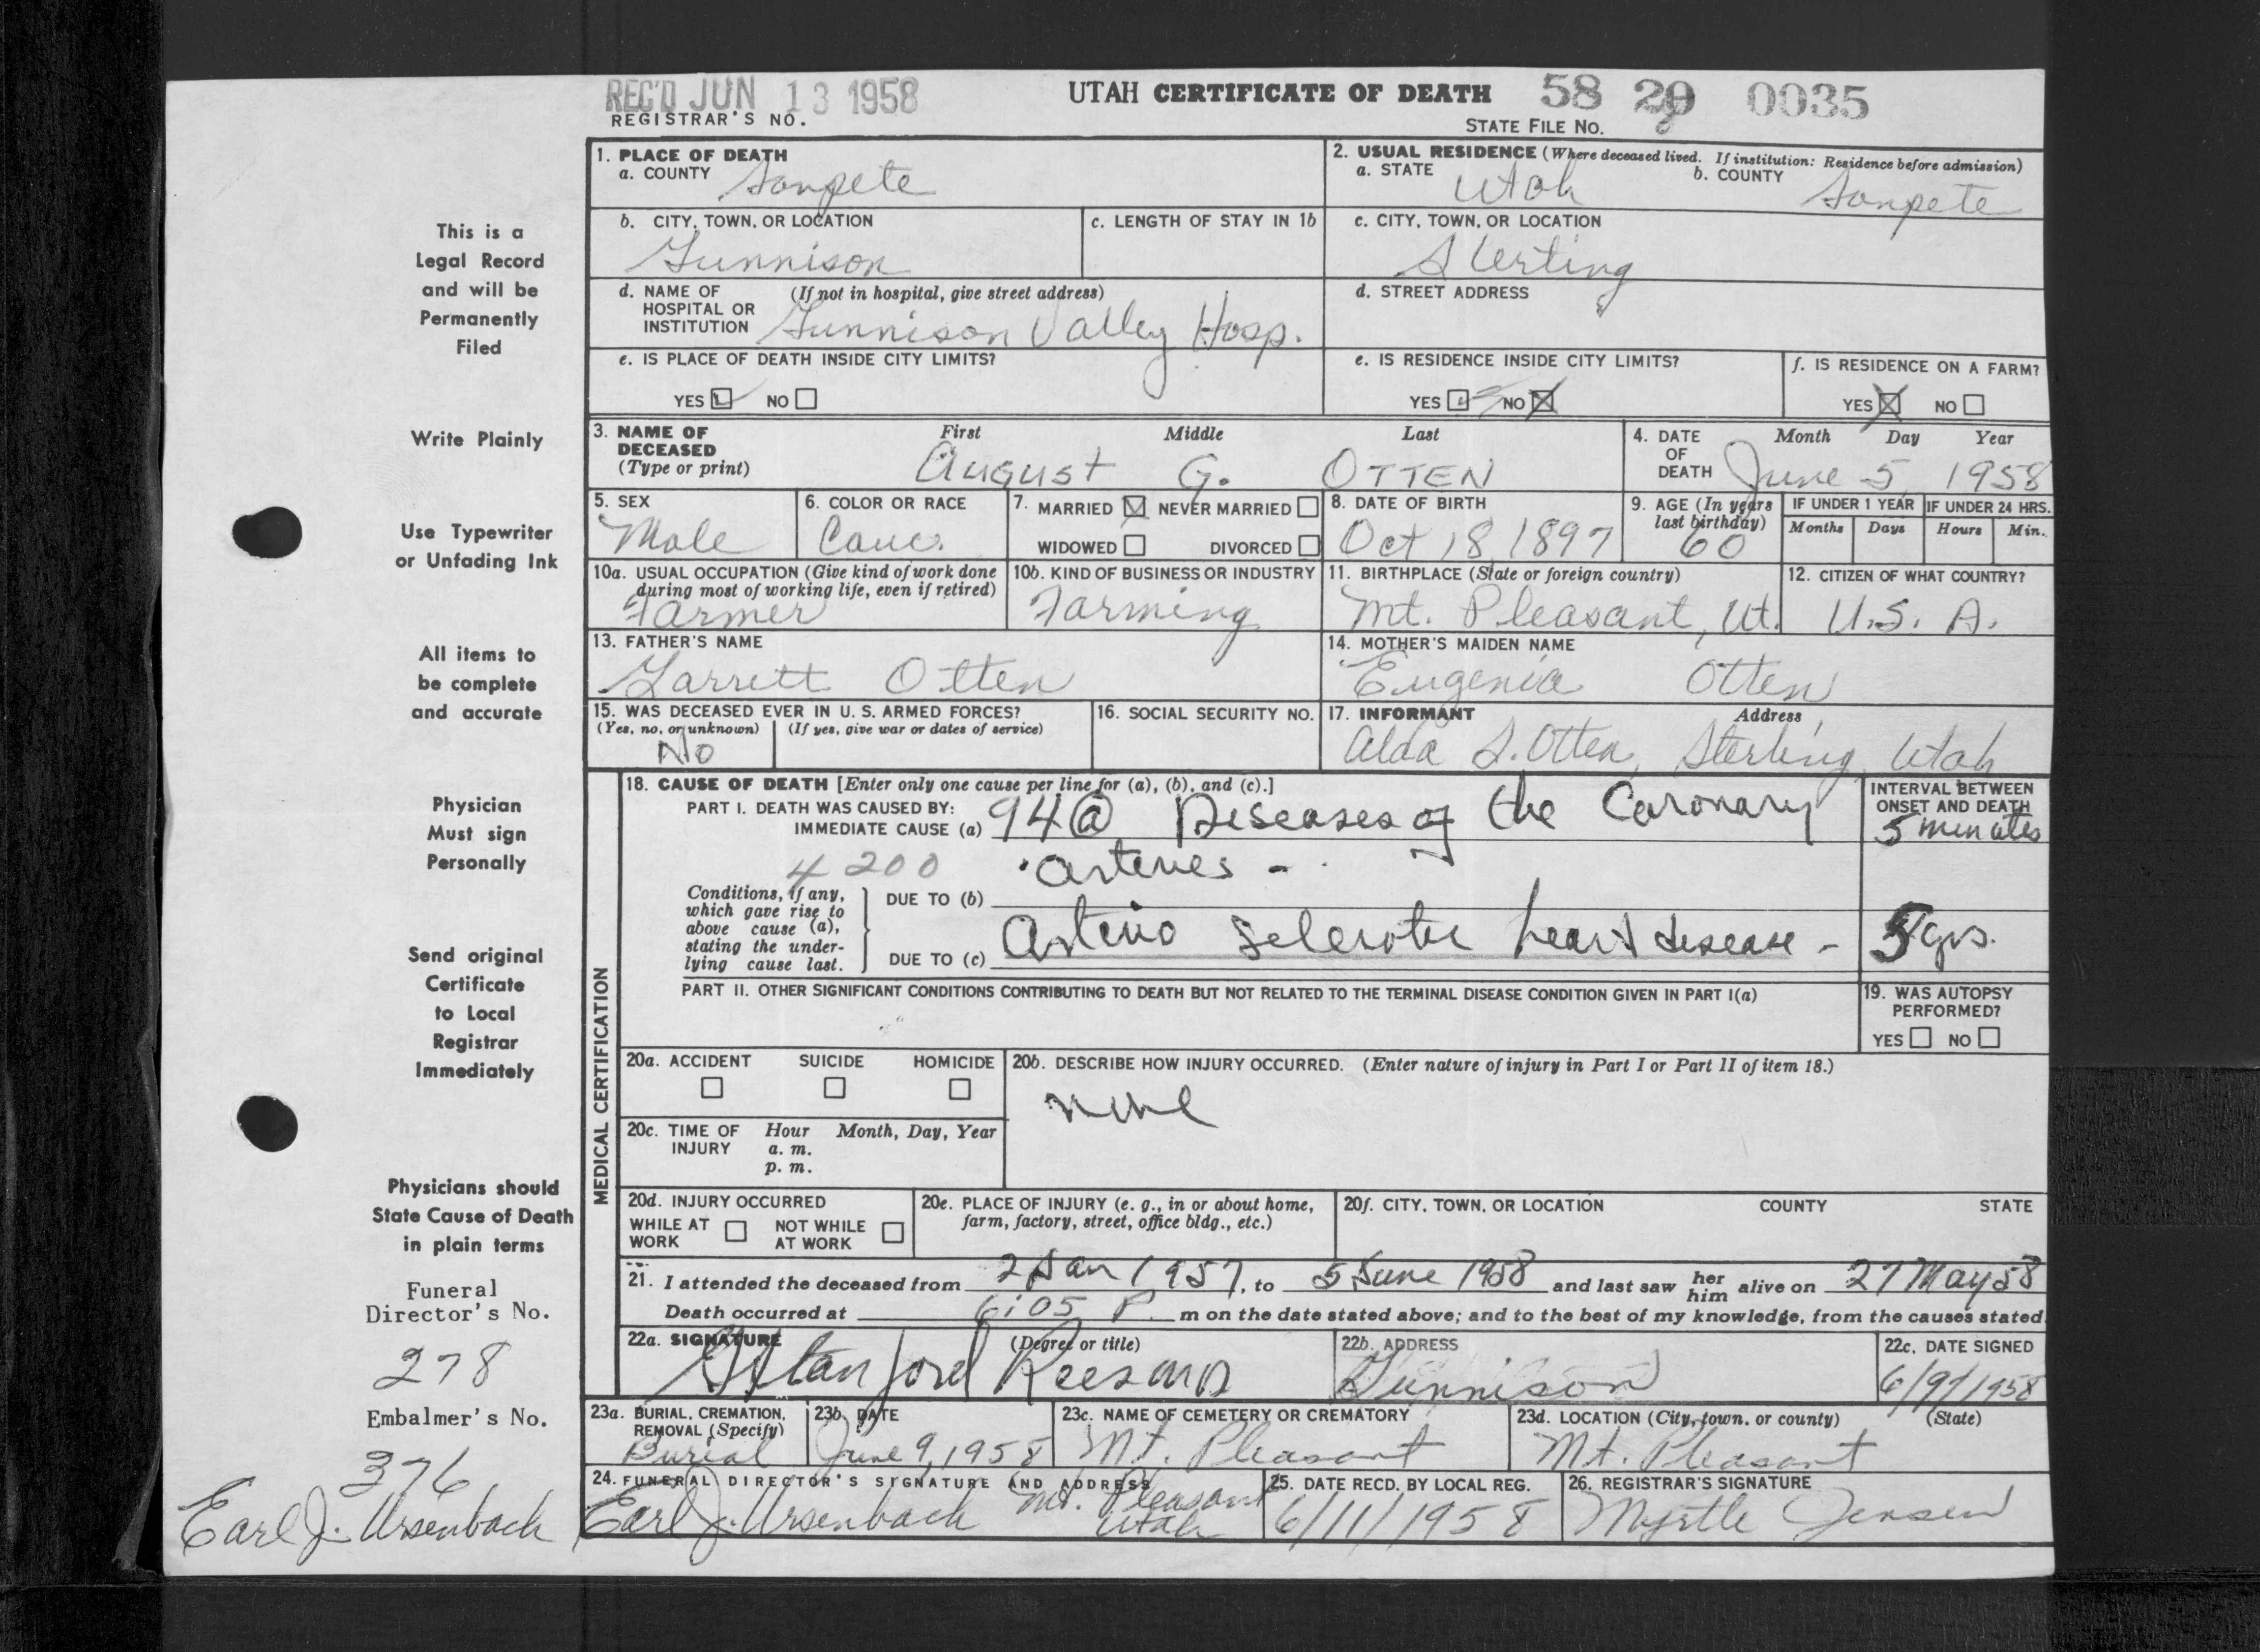 REC'D JUN 13 1958
UTAH CERTIFICATE OF DEATH 58 20 0035
REGISTRAR'S NO.
STATE FILE NO.
This is a
Legal Record
and will be
Permanently
Filed
Write Plainly
Use Typewriter
or Unfading Ink
All items to
be complete
and accurate
Physician
Must sign
Personally
Send original
Certificate
to Local
Registrar
Immediately
Physicians should
State Cause of Death
in plain terms
Funeral
Director's No.
278
Embalmer's No.
376
Earl J. Ursenbach
1. PLACE OF DEATH
a. COUNTY Sanpete
2. USUAL RESIDENCE (Where deceased lived. If institution: Residence before admission)
a. STATE Utah b. COUNTY Sanpete
b. CITY, TOWN, OR LOCATION
Gunnison
c. LENGTH OF STAY IN 1b
c. CITY, TOWN, OR LOCATION
Sterling
d. NAME OF HOSPITAL OR INSTITUTION (If not in hospital, give street address)
Gunnison Valley Hosp.
d. STREET ADDRESS
e. IS PLACE OF DEATH INSIDE CITY LIMITS?
YES NO
e. IS RESIDENCE INSIDE CITY LIMITS?
YES NO
f. IS RESIDENCE ON A FARM?
YES NO
3. NAME OF DECEASED (Type or print)
First Middle Last
August G. OTTEN
4. DATE OF DEATH
Month Day Year
June 5, 1958
5. SEX
Male
6. COLOR OR RACE
Cauc.
7. MARRIED NEVER MARRIED
WIDOWED DIVORCED
8. DATE OF BIRTH
Oct 18, 1897
9. AGE (In years last birthday)
60
IF UNDER 1 YEAR
Months Days
IF UNDER 24 HRS.
Hours Min.
10a. USUAL OCCUPATION (Give kind of work done during most of working life, even if retired)
Farmer
10b. KIND OF BUSINESS OR INDUSTRY
Farming
11. BIRTHPLACE (State or foreign country)
Mt. Pleasant, Ut.
12. CITIZEN OF WHAT COUNTRY?
U.S. A.
13. FATHER'S NAME
Garrett Otten
14. MOTHER'S MAIDEN NAME
Eugenia Otten
15. WAS DECEASED EVER IN U. S. ARMED FORCES?
(Yes, no, or unknown) (If yes, give war or dates of service)
No
16. SOCIAL SECURITY NO.
17. INFORMANT Address
Alda S. Otten, Sterling, Utah
MEDICAL CERTIFICATION
18. CAUSE OF DEATH [Enter only one cause per line for (a), (b), and (c).]
PART I. DEATH WAS CAUSED BY:
IMMEDIATE CAUSE (a) 94a Diseases of the Coronary
4200 arteries -
INTERVAL BETWEEN ONSET AND DEATH
5 minutes
Conditions, if any, which gave rise to above cause (a), stating the underlying cause last.
DUE TO (b)
DUE TO (c) Arterio Sclerotic heart disease -
5 yrs.
PART II. OTHER SIGNIFICANT CONDITIONS CONTRIBUTING TO DEATH BUT NOT RELATED TO THE TERMINAL DISEASE CONDITION GIVEN IN PART I(a)
19. WAS AUTOPSY PERFORMED?
YES NO
20a. ACCIDENT SUICIDE HOMICIDE
20b. DESCRIBE HOW INJURY OCCURRED. (Enter nature of injury in Part I or Part II of item 18.)
none
20c. TIME OF INJURY Hour Month, Day, Year
a. m.
p. m.
20d. INJURY OCCURRED
WHILE AT WORK NOT WHILE AT WORK
20e. PLACE OF INJURY (e. g., in or about home, farm, factory, street, office bldg., etc.)
20f. CITY, TOWN, OR LOCATION COUNTY STATE
21. I attended the deceased from 2 Jan 1957, to 5 June 1958 and last saw her him alive on 27 May 58
Death occurred at 6:05 P. m on the date stated above; and to the best of my knowledge, from the causes stated.
22a. SIGNATURE (Degree or title)
Stanford Rees MD
22b. ADDRESS
Gunnison
22c. DATE SIGNED
6/9/1958
23a. BURIAL, CREMATION, REMOVAL (Specify)
Burial
23b. DATE
June 9, 1958
23c. NAME OF CEMETERY OR CREMATORY
Mt. Pleasant
23d. LOCATION (City, town, or county) (State)
Mt. Pleasant
24. FUNERAL DIRECTOR'S SIGNATURE AND ADDRESS
Earl J. Ursenbach Mt. Pleasant Utah
25. DATE RECD. BY LOCAL REG.
6/11/1958
26. REGISTRAR'S SIGNATURE
Myrtle Jensen